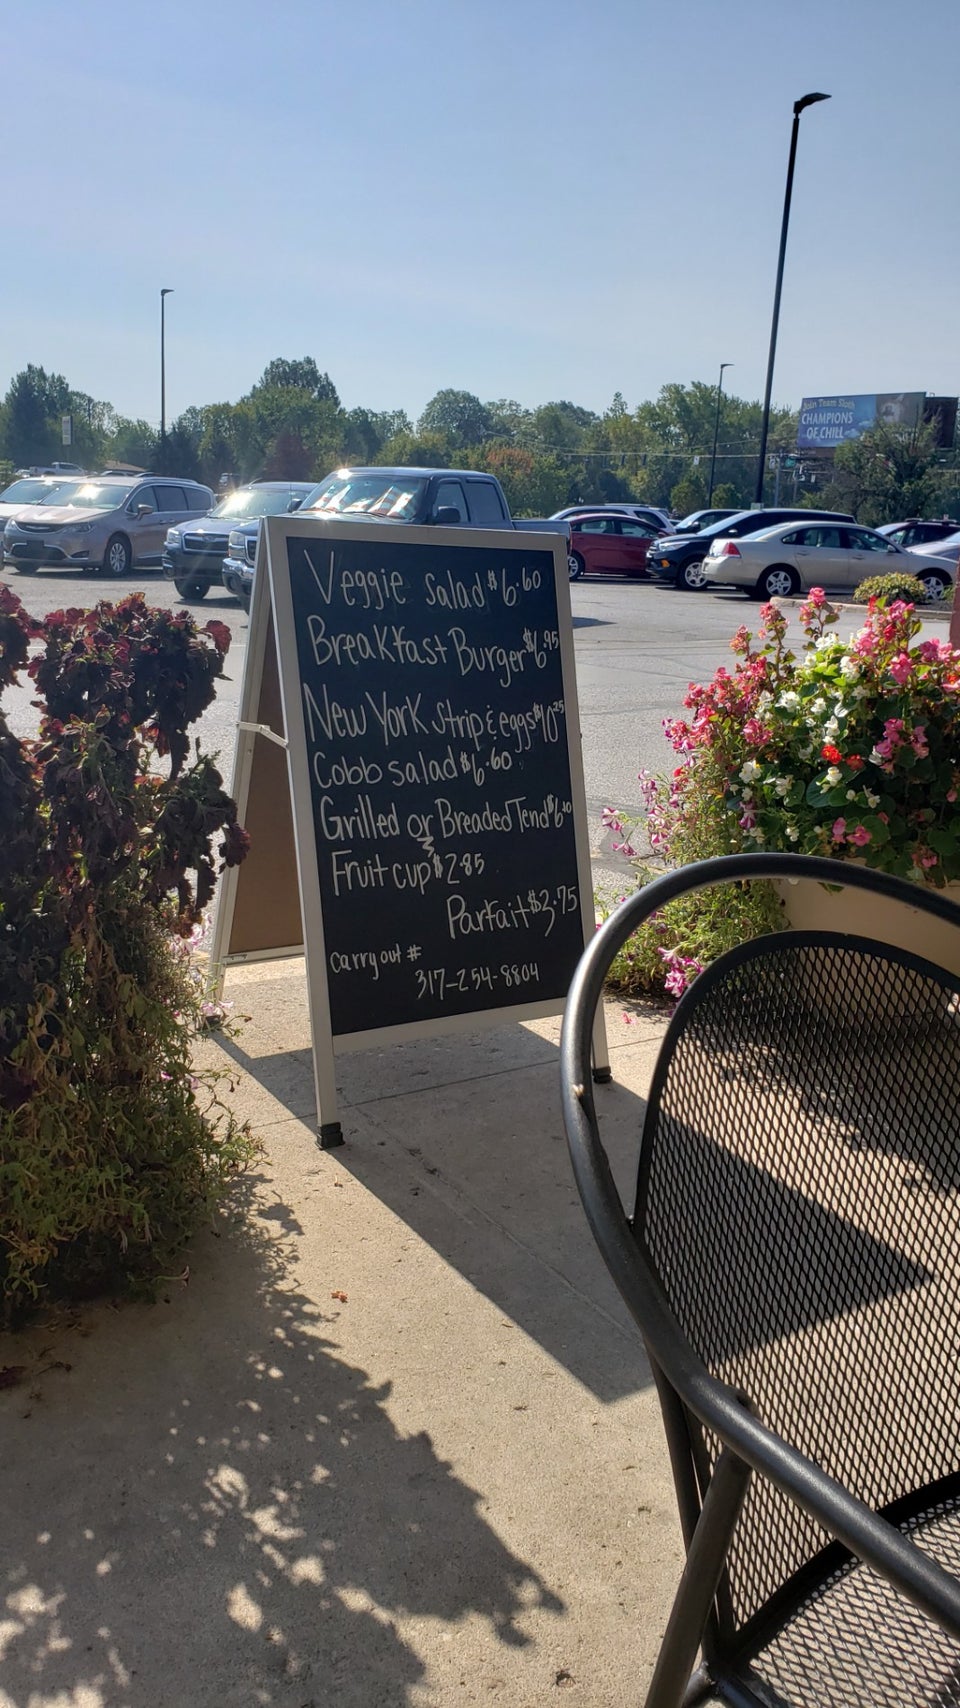 Join Team Sloth
CHAMPIONS
OF CHILL
Veggie Salad $6.60
Breakfast Burger $6.95
New York Strip & eggs $10.25
Cobb salad $6.60
Grilled or Breaded Tend
Fruit cup $2.85
Parfait $3.75
Carry out #
317-254-8804